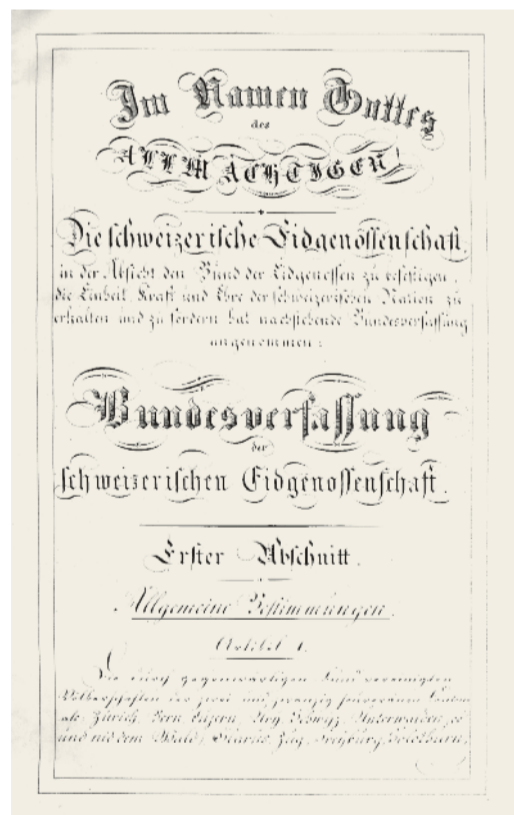 Im Namen Gottes
des
ALLMÄCHTIGEN!
Die schweizerische Eidgenossenschaft,
in der Absicht den Bund der Eidgenossen zu befestigen,
die Einheit, Kraft und Ehre der schweizerischen Nation zu
erhalten und zu fördern hat nachstehende Bundesverfassung
angenommen:
Bundesverfassung
der
schweizerischen Eidgenossenschaft.
Erster Abschnitt.
Allgemeine Bestimmungen.
Artikel 1.
Die durch gegenwärtigen Bund vereinigten
Völkerschaften der zwei und zwanzig souveränen Kantone
als: Zürich, Bern, Luzern, Ury, Schwyz, Unterwalden, ob
und nid dem Wald, Glarus, Zug, Freyburg, Solothurn,